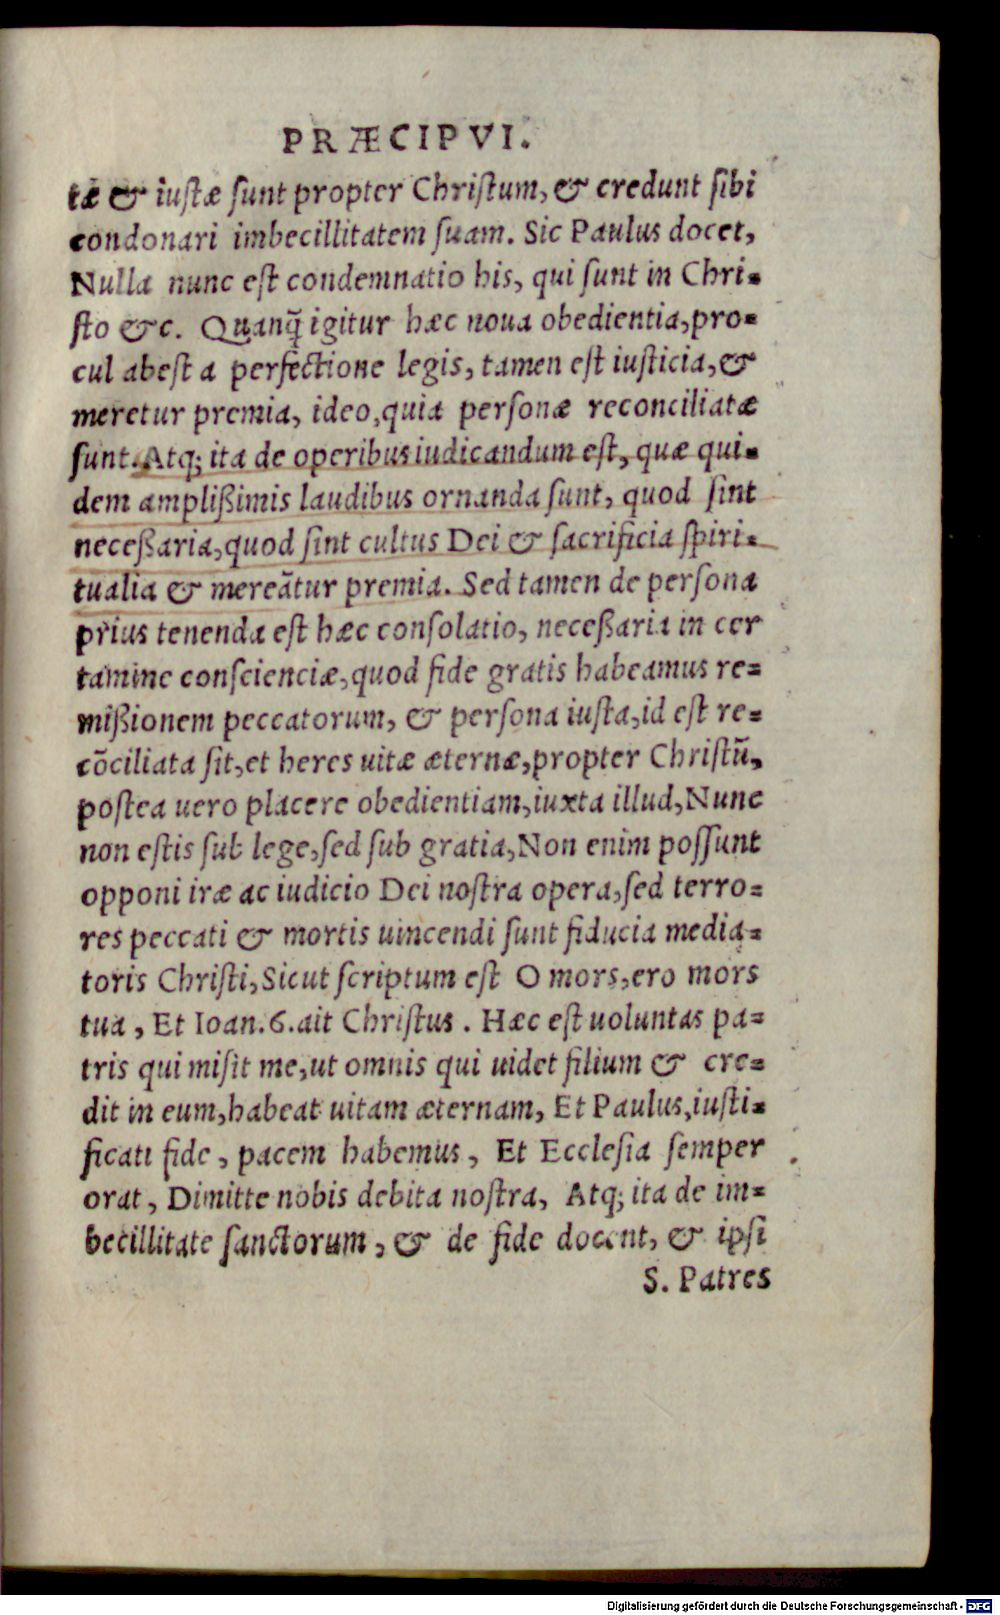 PRÆCIPVI.
tæ & iustæ sunt propter Christum, & credunt sibi
condonari imbecillitatem suam. Sic Paulus docet,
Nulla nunc est condemnatio his, qui sunt in Chri=
sto &c. Quanq̃ igitur hæc noua obedientia, pro=
cul abest a perfectione legis, tamen est iusticia, &
meretur premia, ideo, quia personæ reconciliatæ
sunt. Atq; ita de operibus iudicandum est, quæ qui=
dem amplißimis laudibus ornanda sunt, quod sint
neceßaria, quod sint cultus Dei & sacrificia spiri=
tualia & mereãtur premia. Sed tamen de persona
prius tenenda est hæc consolatio, neceßaria in cer
tamine conscienciæ, quod fide gratis habeamus re=
mißionem peccatorum, & persona iusta, id est re=
cõciliata sit, et heres uitæ æternæ, propter Christũ,
postea uero placere obedientiam, iuxta illud, Nunc
non estis sub lege, sed sub gratia, Non enim possunt
opponi iræ ac iudicio Dei nostra opera, sed terro=
res peccati & mortis uincendi sunt fiducia media=
toris Christi, Sicut scriptum est O mors, ero mors
tua, Et Ioan. 6. ait Christus. Hæc est uoluntas pa=
tris qui misit me, ut omnis qui uidet filium & cre=
dit in eum, habeat uitam æternam, Et Paulus, iusti=
ficati fide, pacem habemus, Et Ecclesia semper
orat, Dimitte nobis debita nostra, Atq; ita de im=
becillitate sanctorum, & de fide docent, & ipsi
S. Patres
Digitalisierung gefördert durch die Deutsche Forschungsgemeinschaft - DFG